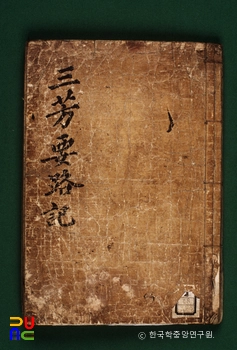 三芳要路記
ⓒ 한국학중앙연구원